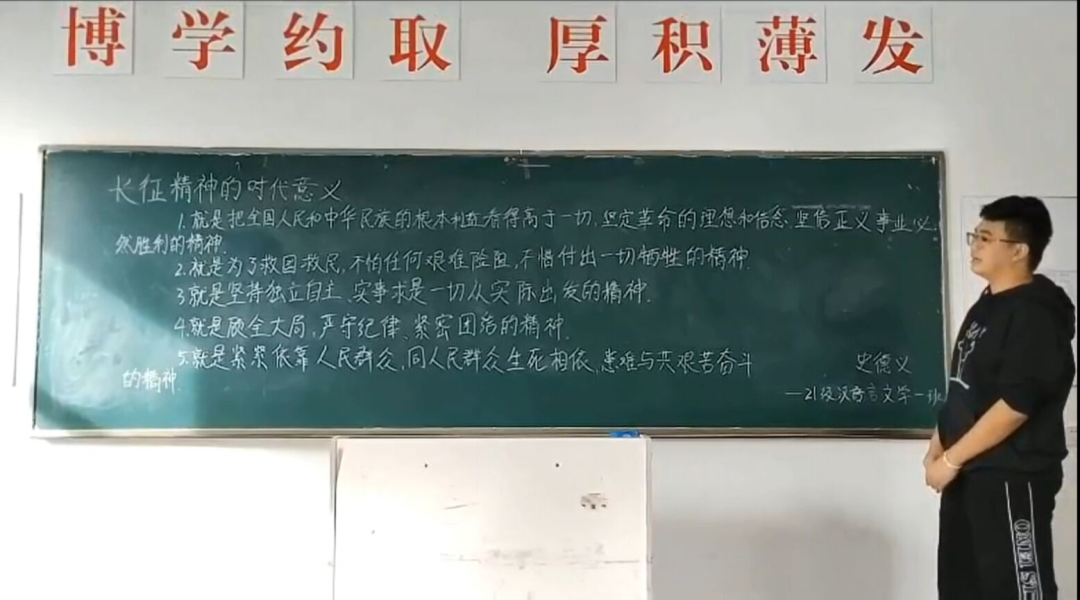 博学约取 厚积薄发
长征精神的时代意义
1.就是把全国人民和中华民族的根本利益看得高于一切,坚定革命的理想和信念,坚信正义事业必
然胜利的精神.
2.就是为了救国救民,不怕任何艰难险阻,不惜付出一切牺牲的精神.
3.就是坚持独立自主、实事求是一切从实际出发的精神.
4.就是顾全大局,严守纪律、紧密团结的精神.
5.就是紧紧依靠人民群众,同人民群众生死相依、患难与共艰苦奋斗
的精神.
史德义
—21级汉语言文学一班